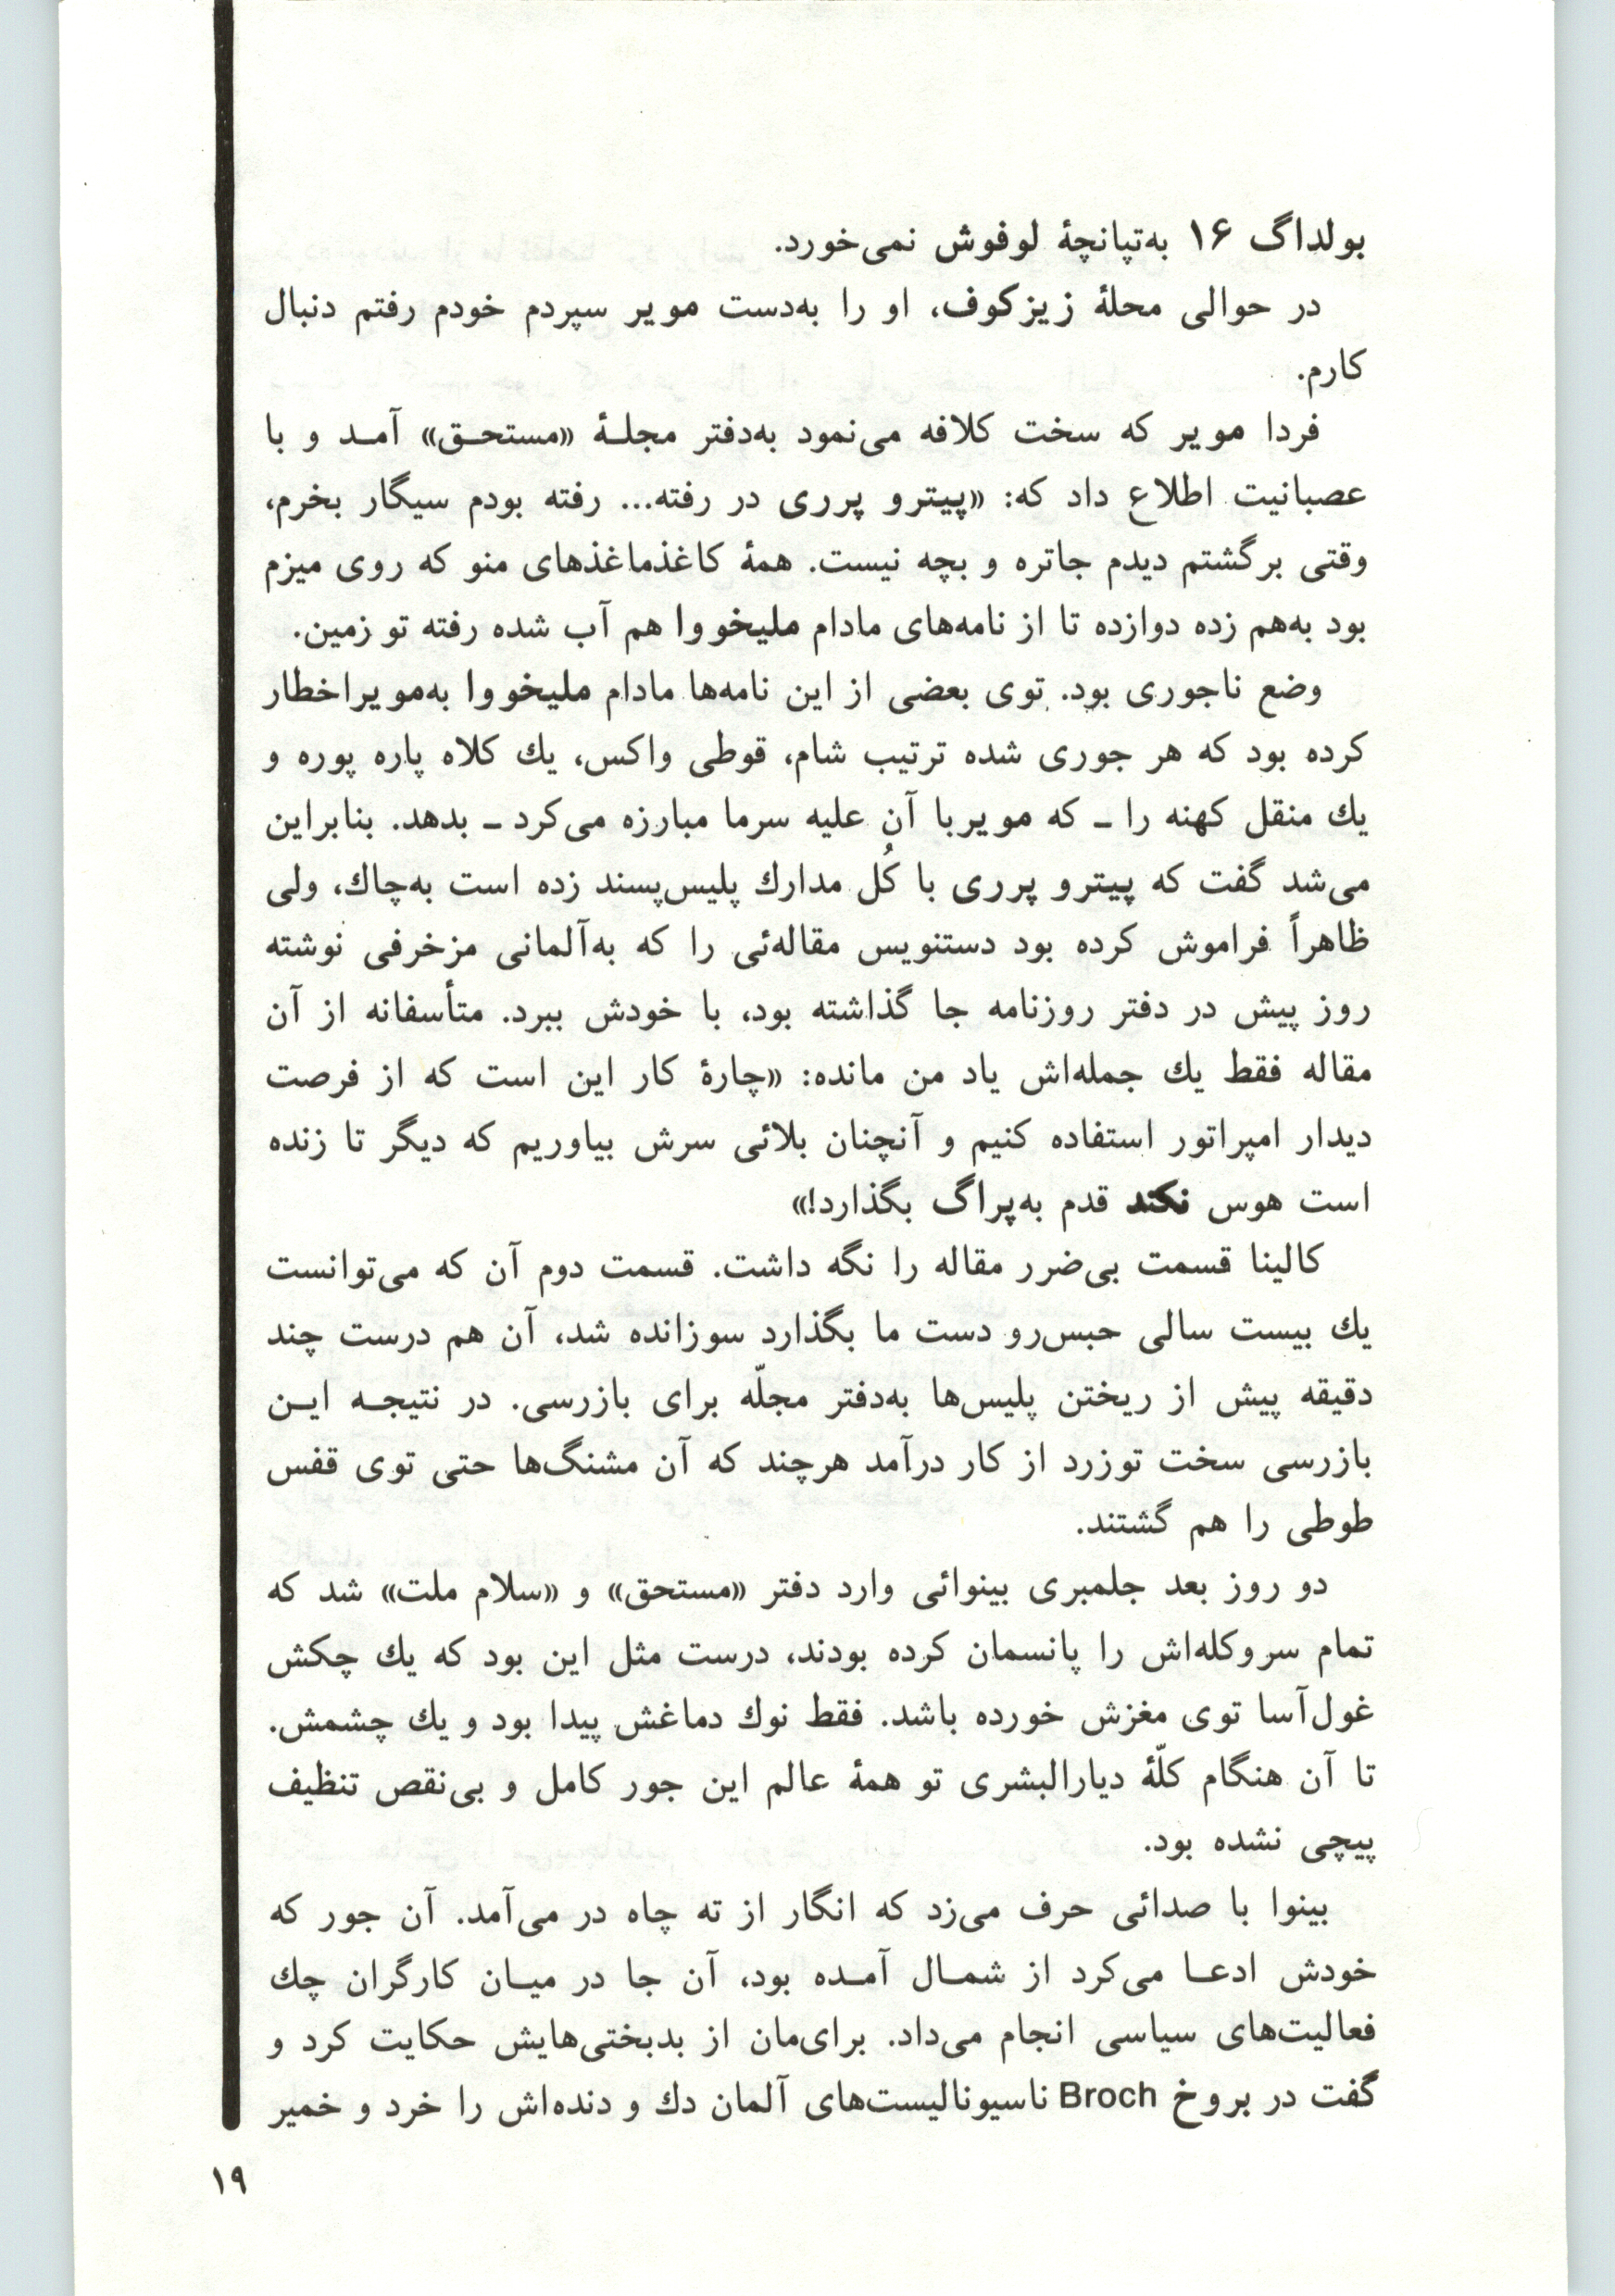 بولداگ ۱۶ به‌تپانچهٔ لوفوش نمی‌خورد.
در حوالی محلهٔ زیزکوف، او را به‌دست مویر سپردم خودم رفتم دنبال
کارم.
فردا مویر که سخت کلافه می‌نمود به‌دفتر مجلـهٔ «مستحـق» آمـد و با
عصبانیت اطلاع داد که: «پیترو پرری در رفته... رفته بودم سیگار بخرم،
وقتی برگشتم دیدم جاتره و بچه نیست. همهٔ کاغذماغذهای منو که روی میزم
بود به‌هم زده دوازده تا از نامه‌های مادام ملیخووا هم آب شده رفته تو زمین.
وضع ناجوری بود. توی بعضی از این نامه‌ها مادام ملیخووا به‌مویراخطار
کرده بود که هر جوری شده ترتیب شام، قوطی واکس، یك کلاه پاره پوره و
یك منقل کهنه را ـ که مویربا آن علیه سرما مبارزه می‌کرد ـ بدهد. بنابراین
می‌شد گفت که پیترو پرری با کُل مدارك پلیس‌پسند زده است به‌چاك، ولی
ظاهراً فراموش کرده بود دستنویس مقاله‌ئی را که به‌آلمانی مزخرفی نوشته
روز پیش در دفتر روزنامه جا گذاشته بود، با خودش ببرد. متأسفانه از آن
مقاله فقط یك جمله‌اش یاد من مانده: «چارهٔ کار این است که از فرصت
دیدار امپراتور استفاده کنیم و آنچنان بلائی سرش بیاوریم که دیگر تا زنده
است هوس نکند قدم به‌پراگ بگذارد!»
کالینا قسمت بی‌ضرر مقاله را نگه داشت. قسمت دوم آن که می‌توانست
یك بیست سالی حبس‌رو دست ما بگذارد سوزانده شد، آن هم درست چند
دقیقه پیش از ریختن پلیس‌ها به‌دفتر مجلّه برای بازرسی. در نتیجـه ایـن
بازرسی سخت توزرد از کار درآمد هرچند که آن مشنگ‌ها حتی توی قفس
طوطی را هم گشتند.
دو روز بعد جلمبری بینوائی وارد دفتر «مستحق» و «سلام ملت» شد که
تمام سروکله‌اش را پانسمان کرده بودند، درست مثل این بود که یك چکش
غول‌آسا توی مغزش خورده باشد. فقط نوك دماغش پیدا بود و یك چشمش.
تا آن هنگام کلّهٔ دیارالبشری تو همهٔ عالم این جور کامل و بی‌نقص تنظیف
پیچی نشده بود.
بینوا با صدائی حرف می‌زد که انگار از ته چاه در می‌آمد. آن جور که
خودش ادعـا می‌کرد از شمـال آمـده بود، آن جا در میـان کارگران چك
فعالیت‌های سیاسی انجام می‌داد. برای‌مان از بدبختی‌هایش حکایت کرد و
گفت در بروخ Broch ناسیونالیست‌های آلمان دك و دنده‌اش را خرد و خمیر
۱۹